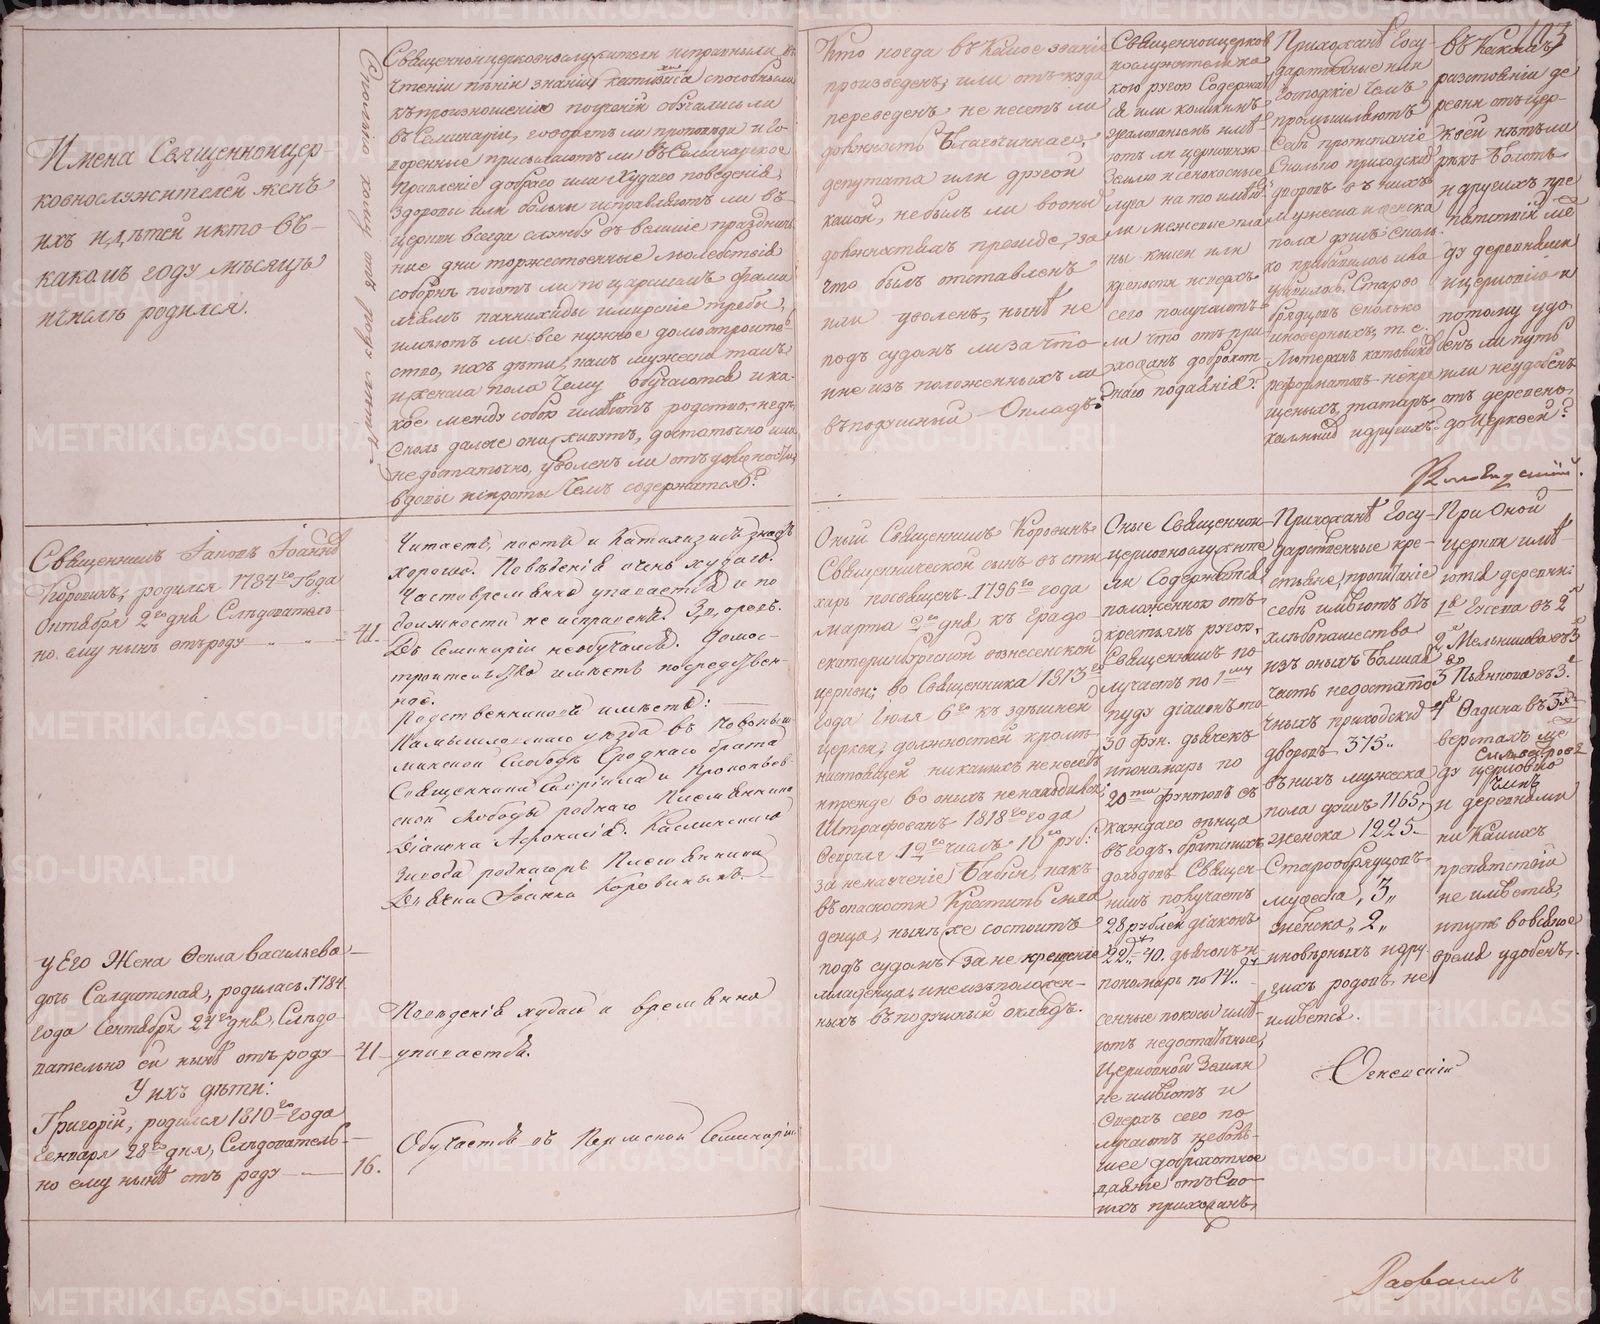 Имена Священноицер-
ковнослужителей женъ
ихъ и детей и кто въ-
какомъ году месяце
и числе родился.
Сколько кому отъ роду летъ
Священноицерковнослужители исправны ли въ
чтении пении знании катихизиса способны ли
къ произношению поучений обучались ли
въ Семинарии, говорятъ ли проповеди и го-
воренные присылаютъ ли въ Семинарское
Правление добраго или худаго поведения,
здоровы или больны исправляютъ ли въ-
церкви всегда службу въ великие праздничъ-
ные дни торжественные молебствия
соборне поютъ ли по царскимъ фами
лиямъ паннихиды и мирские требы,
имеютъ ли все нужное домостроите
ство, ихъ дети, какъ мужеска такъ
и женска пола чему обучаются и ка-
кое между собою имеютъ родство,
сколь далече они живутъ, достаточно или
не достаточно, уволенъ ли отъ должности,
вдовы и сироты чемъ содержатся?
Кто когда въ какое звание
произведенъ, или отъ куда
переведенъ не несетъ ли
должность Благочиннаго,
депутата или другой
какой, не былъ ли во оныхъ
должностяхъ прежде, за
что былъ отставленъ
или уволенъ, ныне не
подъ судомъ ли за что
и не изъ положенныхъ ли
въ подушный окладъ?
Священноицерков
нослужители ка
кою ругою содержат
ся или какимъ
жалованьемъ име-
ютъ ли церковную
землю и сенокосные
луга на то имеют
ли межевые пла
ны книги или
крепости и сверхъ
сего получаютъ
ли что отъ при
хожанъ доброхот
наго подаяния?
Прихожане Госу
дарственные или
Господские чемъ
промышляютъ
себе пропитание
сколько приходскихъ
дворовъ въ нихъ
мужеска и женска
пола душъ сколь
ко прибавилось или
убавилось. Старо
обрядцовъ сколько
иноверныхъ, т. е.
Лютеранъ католиковъ
реформатовъ некре
щеныхъ татаръ
калмыковъ и другихъ.
103
въ какомъ
разстоянии де
ревни отъ цер-
квей нетъ ли
рекъ болотъ
и другихъ пре
пятствий ме
жду деревнями
и церковию и
потому удо
бенъ ли путь
или неудобенъ
отъ деревень
до церквей?
Священникъ Иаковъ Иоанновъ
Коровинъ, родился 1784го года
октября 2го дня Следователь-
но ему ныне отъ роду
41.
Читаетъ, поетъ и катихизисъ знаетъ
хорошо. Поведения очень худаго.
Часто временно упивается и по
должности не исправенъ. Здоровъ.
Въ Семинарии не обучался. Домос-
троительство имеетъ посредствен-
ное.
Родственниковъ имеетъ:
Камышловскаго уезда въ Новопыш-
минской Слободе Сроднаго брата
Священника Гавриила и Прокопьев-
ской Слободы роднаго Племянника
Диакона Афонасия. Каслинскаго
завода роднаго Племянника
Дьячка Иоанна Коровиныхъ.
Оный Священникъ Коровинъ
Священнической сынъ въ сти
харь посвященъ 1796го года
марта 2го дня къ градо
екатеринбургской вознесенской
церкви; во Священника 1813го
года июля 6го къ здешней
церкви; должностей кроме
настоящей никакихъ не несетъ
и прежде во оныхъ не находился;
Штрафованъ 1818го года
Февраля 12го числа 10 руб:
за ненаучение Бабки, какъ
въ опасности Крестить мла
денца, ныне же состоитъ
подъ судомъ за не крещение
младенца, и не изъ положен-
ныхъ въ подушный окладъ.
Оные Священнои
церковнослужите
ли содержатся
положенною отъ
крестьянъ ругою,
Священникъ по
лучаетъ по 1му
пуду диаконъ по
30 фун. дьячекъ
и пономарь по
20ти фунтовъ съ
каждаго венца
въ годъ, братскихъ
доходовъ Священ
никъ получаетъ
28 рублей диаконъ
22. 40. дьячокъ и
пономарь по 14.
сенные покосы име
ютъ недостаточные,
Церковной Земли
не имеютъ и
сверхъ сего по
лучаютъ неболь
шее доброхотное
даяние отъ Сво
ихъ прихожанъ.
Прихожане Госу-
дарственные кре-
стьяне, пропитание
себе имеютъ въ
хлебопашестве
изъ оныхъ большая
часть недостато
чныхъ приходскихъ
дворовъ 375.
въ нихъ мужеска
пола душъ 1165,
женска 1225.
Старообрядцовъ
мужеска „3„
женска „2„
иноверныхъ и дру
гихъ родовъ не
имеется.
При оной
церкви име-
ются деревни:
верстахъ ме
жду церковию
и деревнями
ни какихъ
препятствий
не имеется,
и путь во всякое
время удобенъ.
у Его Жена Фекла Васильева
дочь Салдатская, родилась 1784
года Сентября 24го дня, Следо
вательно ей ныне отъ роду
41
Поведения худаго и временно
упивается.
У ихъ дети:
Григорий, родился 1810го года
Генваря 28го дня, Следователь-
но ему ныне отъ роду
16.
Обучается въ Пермской Семинарии
METRIKI.GASO-URAL.RU